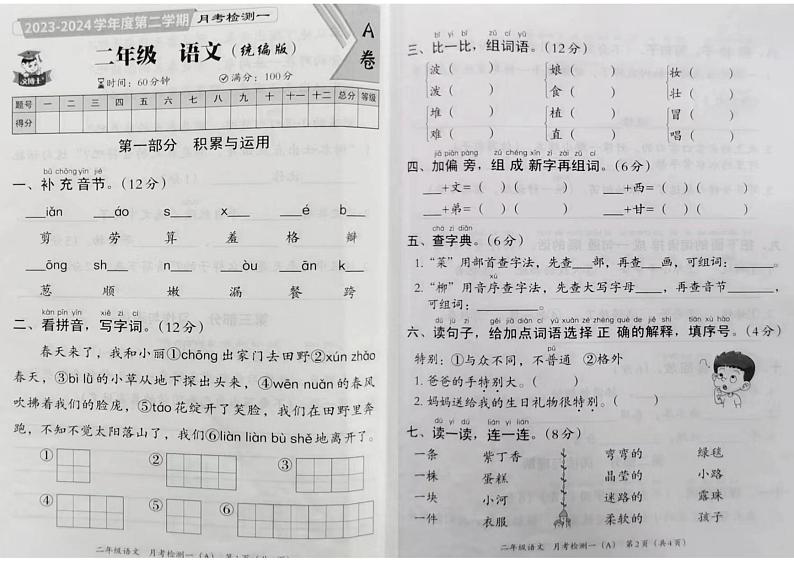 2023-2024学年度第二学期 月考检测一
A卷
二年级 语文(统编版)
时间:60分钟 满分:100分
题号 一 二 三 四 五 六 七 八 九 十 十一 十二 总分 等级
得分
第一部分 积累与运用
bǔ chōng yīn jié
一、补充音节。(12分)
___iǎn ___áo s___ x___ ___é b___
剪 劳 算 羞 格 瓣
___ōng sh___ n___ ___òu ___ān k___
葱 顺 嫩 漏 餐 跨
kàn pīn yīn xiě zì cí
二、看拼音,写字词。(12分)
春天来了,我和小丽①chōng出家门去田野②xún zhǎo
春天,③bì lǜ的小草从地下探出头来,④wēn nuǎn的春风
吹拂着我们的脸庞,⑤táo花绽开了笑脸,我们在田野里奔
跑,不知不觉太阳落山了,我们⑥liàn liàn bù shě地离开了。
① ② ③
④ ⑤ ⑥
bǐ yì bǐ zǔ cí yǔ
三、比一比,组词语。(12分)
波( ) 娘( ) 妆( )
泼( ) 食( ) 壮( )
堆( ) 植( ) 冒( )
难( ) 直( ) 唱( )
jiā piān páng zǔ chéng xīn zì zài zǔ cí
四、加偏旁,组成新字再组词。(6分)
___+文=( )( ) ___+西=( )( )
___+弟=( )( ) ___+甘=( )( )
chá zì diǎn
五、查字典。(6分)
1.“菜”用部首查字法,先查___部,再查___画,可组词:___。
2.“柳”用音序查字法,先查大写字母___,再查音节___,
可组词:___。
dú jù zi gěi jiā diǎn cí yǔ xuǎn zé zhèng què de jiě shì tián xù hào
六、读句子,给加点词语选择正确的解释,填序号。(4分)
特别:①与众不同,不普通 ②格外
1.爸爸的手特别大。( )
2.妈妈送给我的生日礼物很特别。( )
dú yi dú lián yi lián
七、读一读,连一连。(8分)
一条 紫丁香 弯弯的 绿毯
一株 蛋糕 晶莹的 小路
一块 小河 迷路的 露珠
一件 衣服 柔软的 孩子
二年级语文 月考检测一(A)
二年级语文 月考检测一(A) 第2页(共4页)